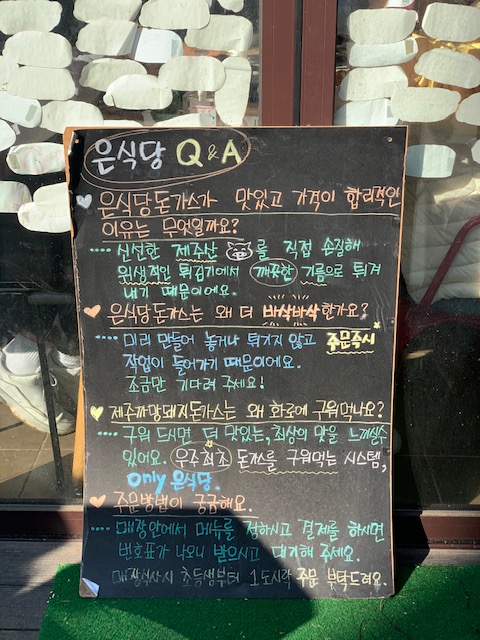 은식당 Q&A
은식당돈가스가 맛있고 가격이 합리적인
이유는 무엇일까요?
···· 신선한 제주산 를 직접 손질해
위생적인 튀김기에서 깨끗한 기름으로 튀겨
내기 때문이에요.
은식당돈가스는 왜 더 바삭바삭한가요?
···· 미리 만들어 놓거나 튀기지 않고 주문즉시
작업이 들어가기 때문이에요.
조금만 기다려 주세요!
제주까망돼지돈가스는 왜 화로에 구워먹나요?
···· 구워 드시면 더 맛있는, 최상의 맛을 느끼실수
있어요. 우주최초 돈가스를 구워먹는 시스템,
Only 은식당.
주문방법이 궁금해요.
···· 매장안에서 메뉴를 정하시고 결제를 하시면
번호표가 나오니 받으시고 대기해 주세요.
매장식사시 초등생부터 1도시락 주문 부탁드려요.